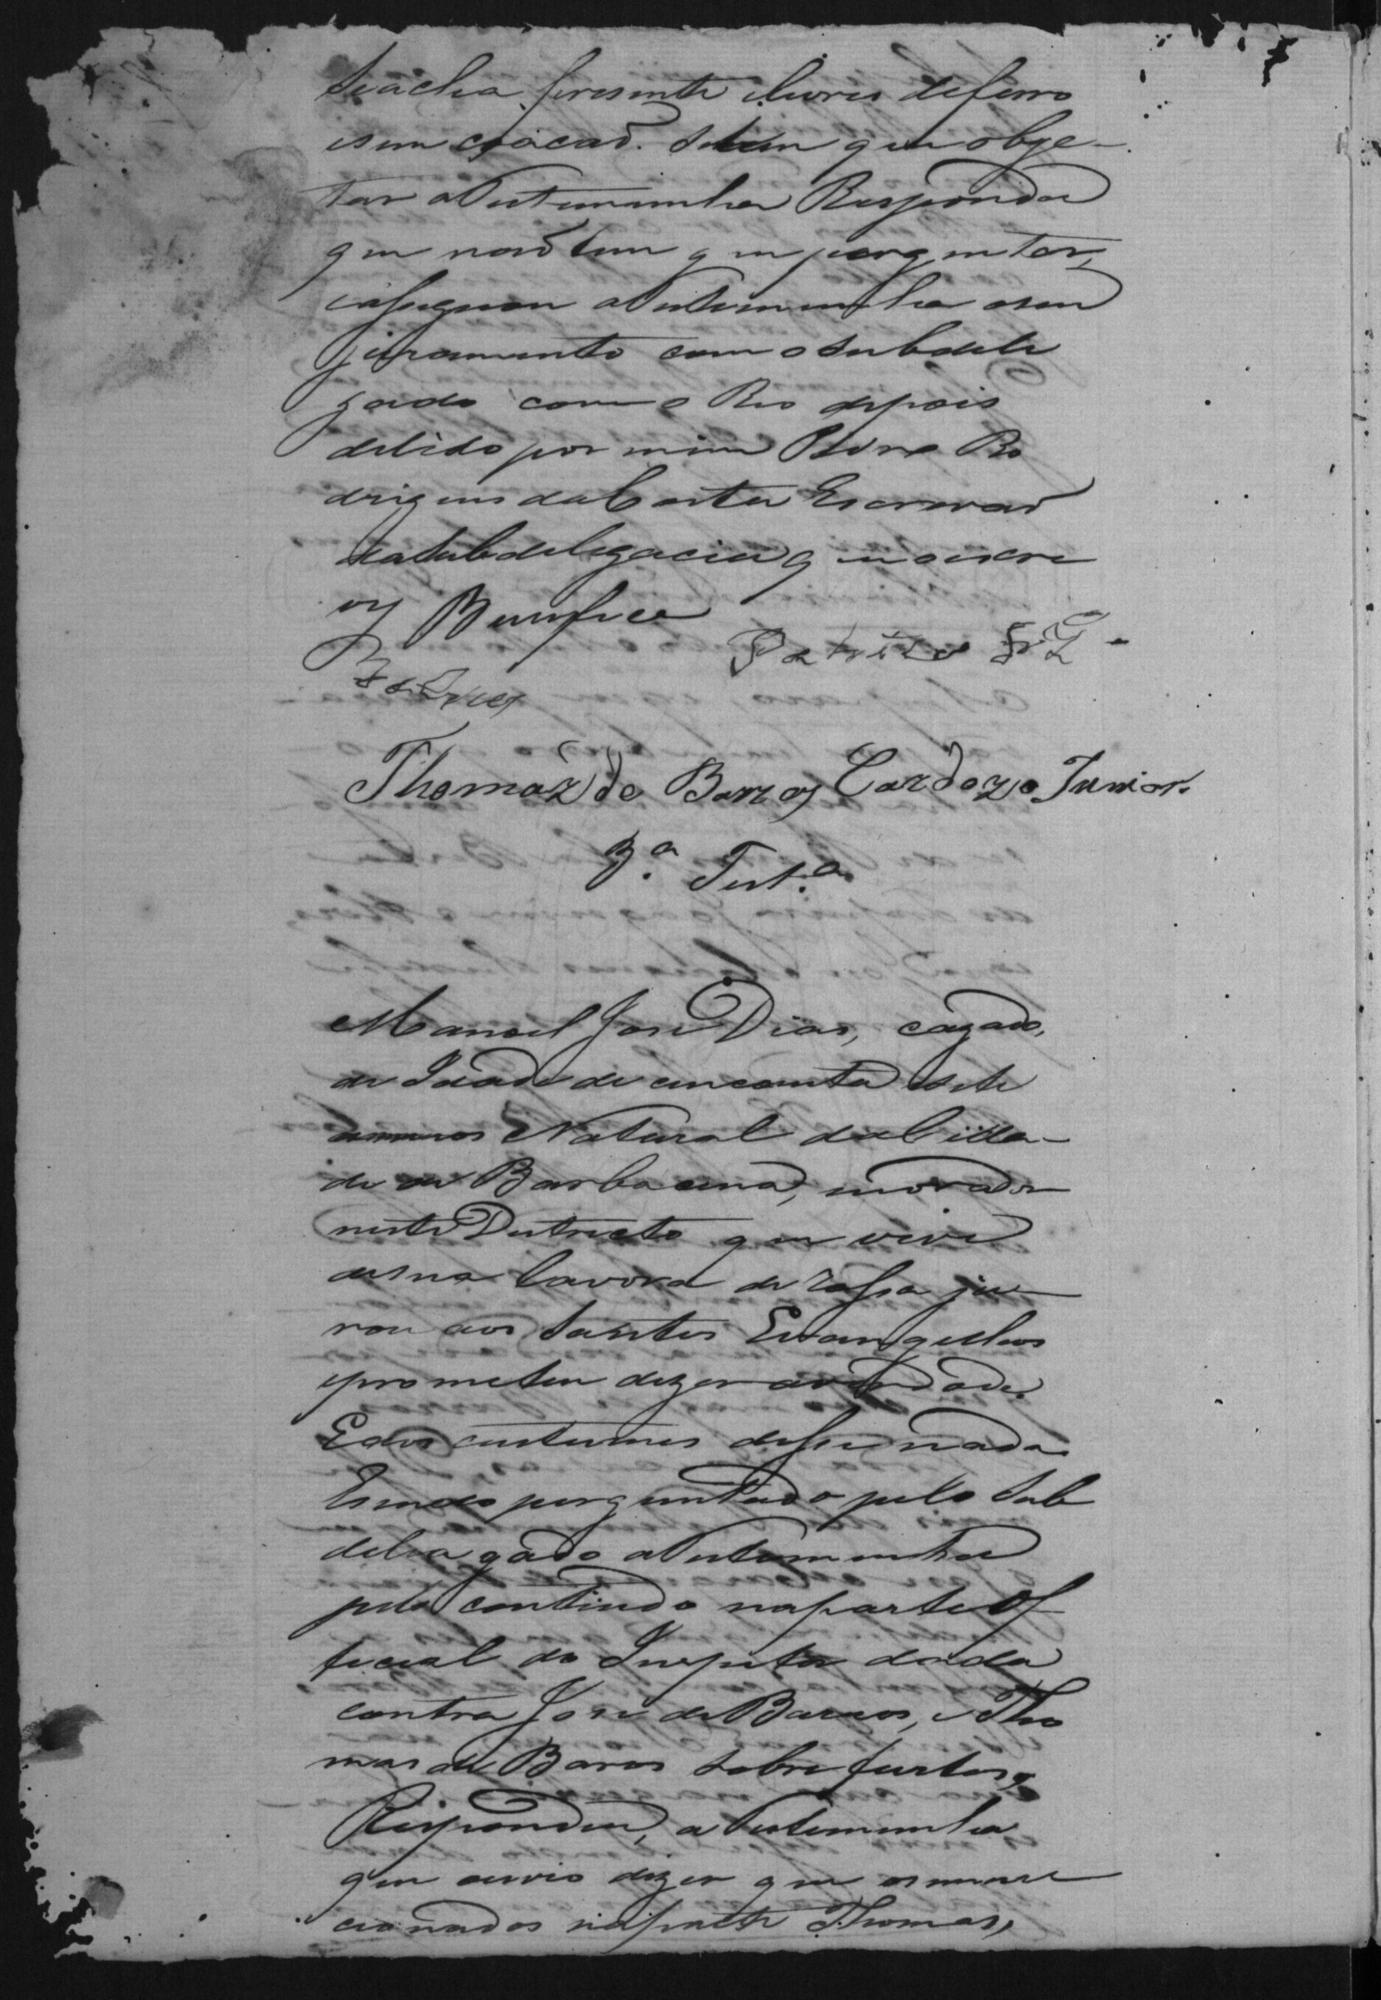 se acha presente livres de ferro
e sem coacaõ. Se tem que obje-
tar a Testemunha Respondeu
que naõ tem que perguntar,
e assignou a Testemunha o seu
juramento com o Subdele
gado com o Reo depois
de lido por mim Ro
drigues da Costa Escrivaõ
da Subdelegacia que o escre
vy Bemfica
Thomaz de Barros Cardozo Junior.
3.ª Test.ª
Manoel José Dias, cazado,
de Idade de cincoenta e sete
annos Natural da Cida-
de de Barbacena, morador
neste Destricto que vive
de sua lavora de rossa ju-
rou aos Santos Evangelhos
e prometeu dizer a verdade.
E dos custumes disse nada
E sendo perguntado pelo Sub
delagado a Testemunha
pelo contiudo na parte Of
ficial do Inspetor dada
contra José de Barros, e Tho
mas de Baros sobre furtos,
Respondeu, a Testemunha
que ouvio dizer que os menc
cionados na parte Thomas,